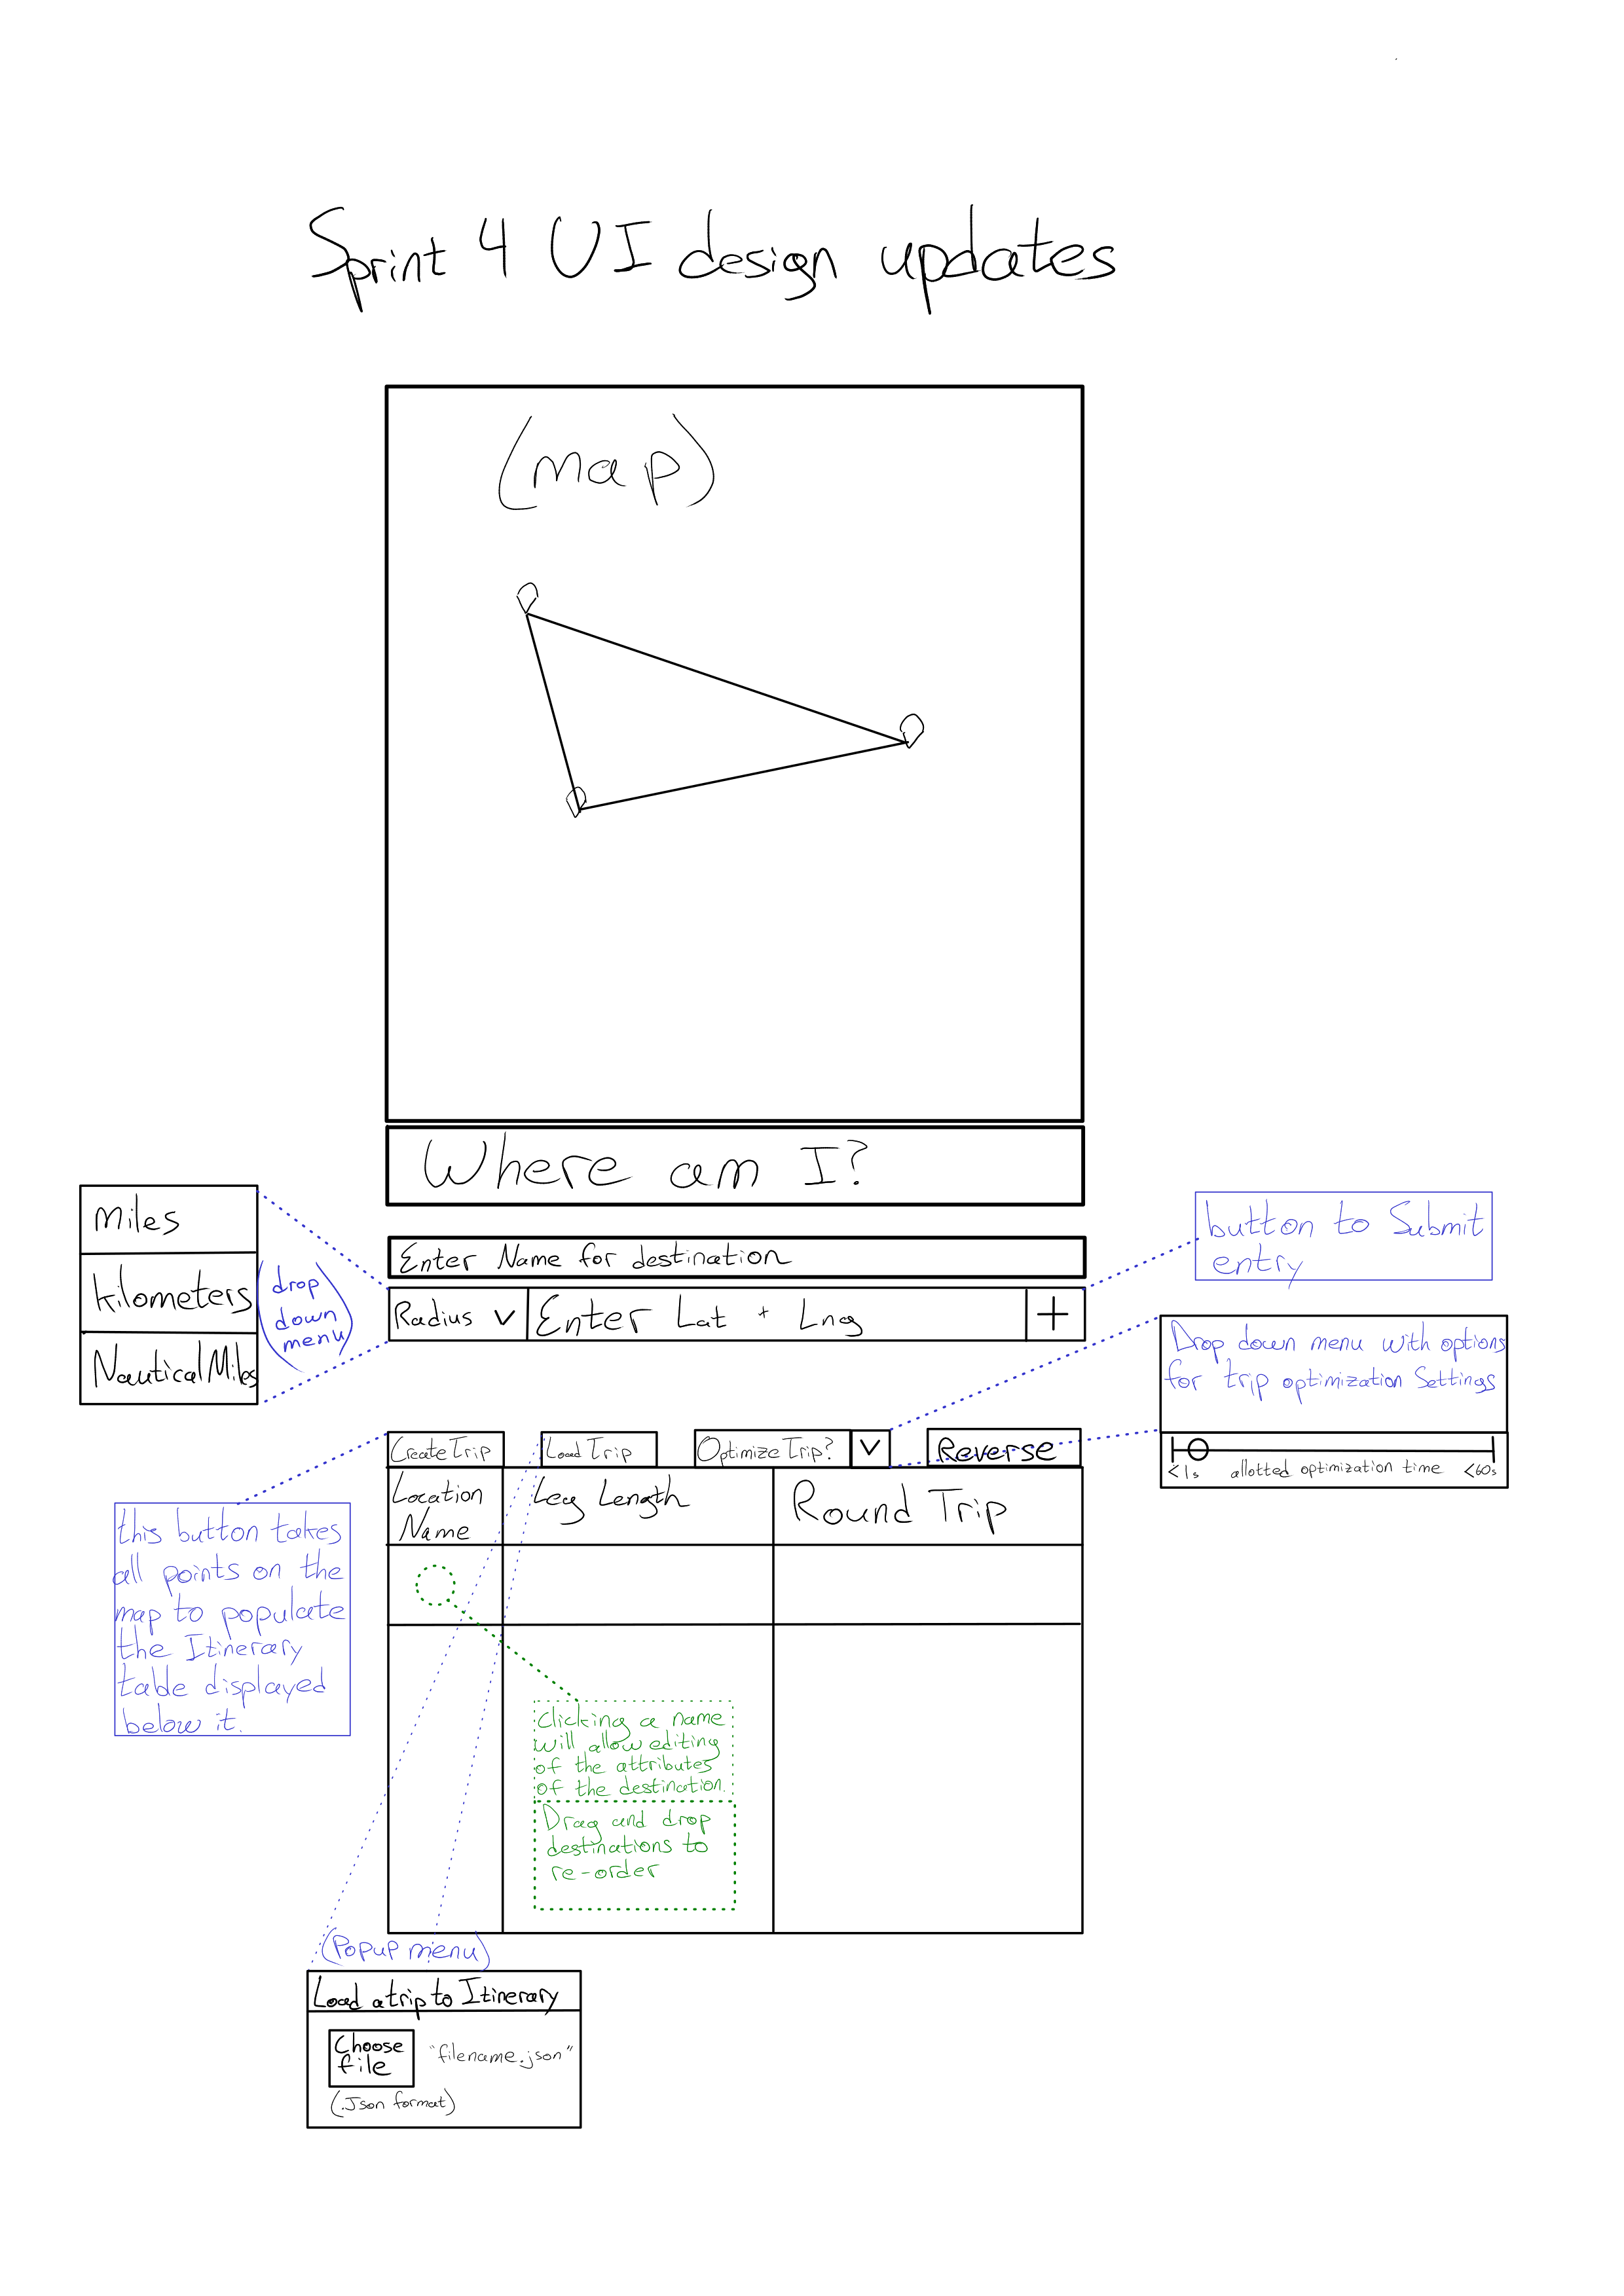 Sprint 4 UI design updates
(map)
Where am I?
Miles
kilometers
Nautical Miles
(drop
down
menu)
Enter Name for destination
Radius v Enter Lat + Lng +
button to Submit
entry
Drop down menu with options
for trip optimization Settings
<1s allotted optimization time <60s
Create Trip Load Trip Optimize Trip? v Reverse
Location
Name
Leg Length
Round Trip
this button takes
all points on the
map to populate
the Itinerary
table displayed
below it.
Clicking a name
will allow editing
of the attributes
of the destination.
Drag and drop
destinations to
re-order
(Popup menu)
Load a trip to Itinerary
Choose
file
"filename.json"
(.Json format)